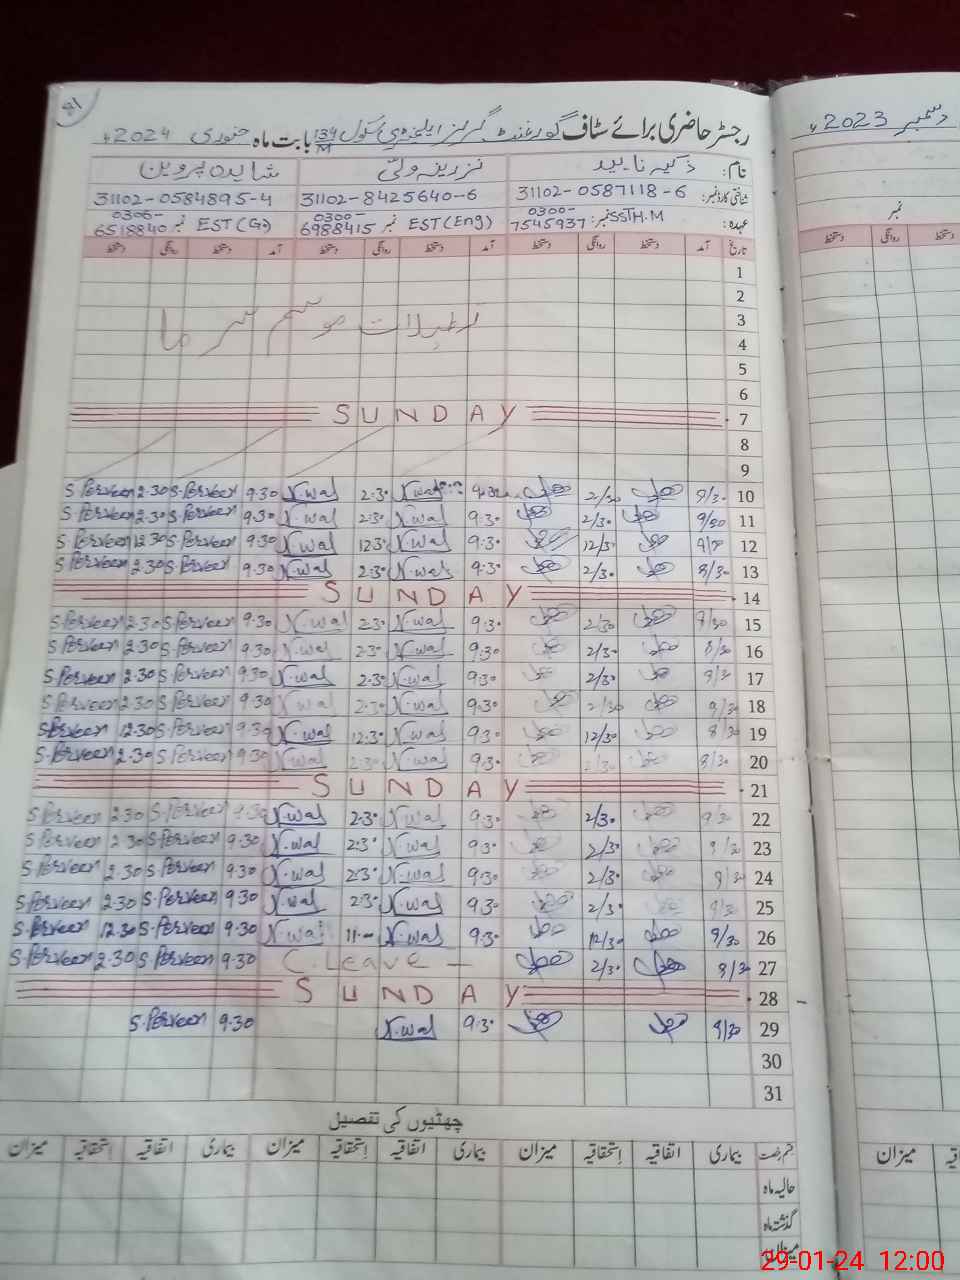 81
رجسٹر حاضری برائے سٹاف گورنمنٹ گرلز ایلیمنٹری سکول 134/M بابت ماہ جنوری 2024ء
دسمبر 2023ء
نام: ذکیہ ناہید زرینہ ولی شاہدہ پروین
شناختی کارڈ نمبر: 31102-0587118-6 31102-8425640-6 31102-0584895-4
عہدہ: SSTH.M نمبر 0300-7545937 EST(Eng) نمبر 0300-6988415 EST(G) نمبر 0306-6518840
نمبر
تاریخ آمد دستخط روانگی دستخط آمد دستخط روانگی دستخط آمد دستخط روانگی دستخط
دستخط روانگی دستخط
1
2
3 تعطیلات موسم سرما
4
5
6
SUNDAY 7
8
9
S.Perveen 2.30 S.Perveen 9.30 N.wal 2.30 N.wal 2/30 9/30 10
S.Perveen 2.30 S.Perveen 9.30 N.wal 2.30 N.wal 9.30 2/30 9/30 11
S.Perveen 12.30 S.Perveen 9.30 N.wal 12.30 N.wal 9.30 12/30 9/30 12
S.Perveen 2.30 S.Perveen 9.30 N.wal 2.30 N.wal 9.30 2/30 9/30 13
SUNDAY 14
S.Perveen 2.30 S.Perveen 9.30 N.wal 2.30 N.wal 9.30 2/30 9/30 15
S.Perveen 2.30 S.Perveen 9.30 N.wal 2.30 N.wal 9.30 2/30 9/30 16
S.Perveen 2.30 S.Perveen 9.30 N.wal 2.30 N.wal 9.30 2/30 9/30 17
S.Perveen 2.30 S.Perveen 9.30 N.wal 2.30 N.wal 9.30 2/30 9/30 18
S.Perveen 12.30 S.Perveen 9.30 N.wal 12.30 N.wal 9.30 12/30 9/30 19
S.Perveen 2.30 S.Perveen 9.30 N.wal 2.30 N.wal 9.30 2/30 9/30 20
SUNDAY 21
S.Perveen 2.30 S.Perveen 9.30 N.wal 2.30 N.wal 9.30 2/30 9/30 22
S.Perveen 2.30 S.Perveen 9.30 N.wal 2.30 N.wal 9.30 2/30 9/30 23
S.Perveen 2.30 S.Perveen 9.30 N.wal 2.30 N.wal 9.30 2/30 9/30 24
S.Perveen 2.30 S.Perveen 9.30 N.wal 2.30 N.wal 9.30 2/30 9/30 25
S.Perveen 12.30 S.Perveen 9.30 N.wal 11.00 N.wal 9.30 12/30 9/30 26
S.Perveen 2.30 S.Perveen 9.30 C.Leave 2/30 9/30 27
SUNDAY 28
S.Perveen 9.30 N.wal 9.30 9/30 29
30
31
چھٹیوں کی تفصیل
قسم رخصت بیماری اتفاقیہ استحقاقیہ میزان بیماری اتفاقیہ استحقاقیہ میزان بیماری اتفاقیہ استحقاقیہ میزان
میزان
حالیہ ماہ
گذشتہ ماہ
میزان
29-01-24 12:00